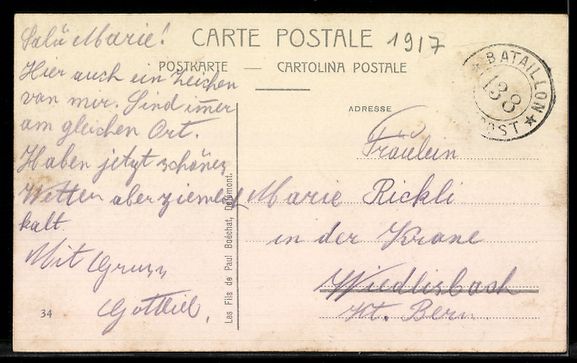 CARTE POSTALE
1917
POSTKARTE — CARTOLINA POSTALE
ADRESSE
BATAILLON
138
POST ★
Salü Marie!
Hier auch ein Zeichen
von mir. Sind im̄er
am gleichen Ort.
Haben jetzt schönes
Wetter aber ziemlich
kalt.
Mit Gruss
Gottlieb.
34
Les Fils de Paul Boéchat, Delémont.
Fräulein
Marie Rickli
in der Krone
Wiedlisbach
Kt. Bern